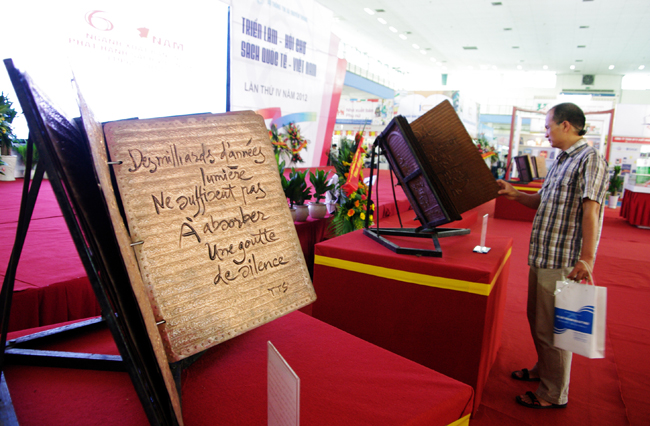 1 NĂM
TRIỂN LÃM - HỘI CHỢ
SÁCH QUỐC TẾ - VIỆT NAM
LẦN THỨ IV NĂM 2012
Des milliards d'années
lumière
Ne suffisent pas
À absorber
Une goutte
de silence
TTS